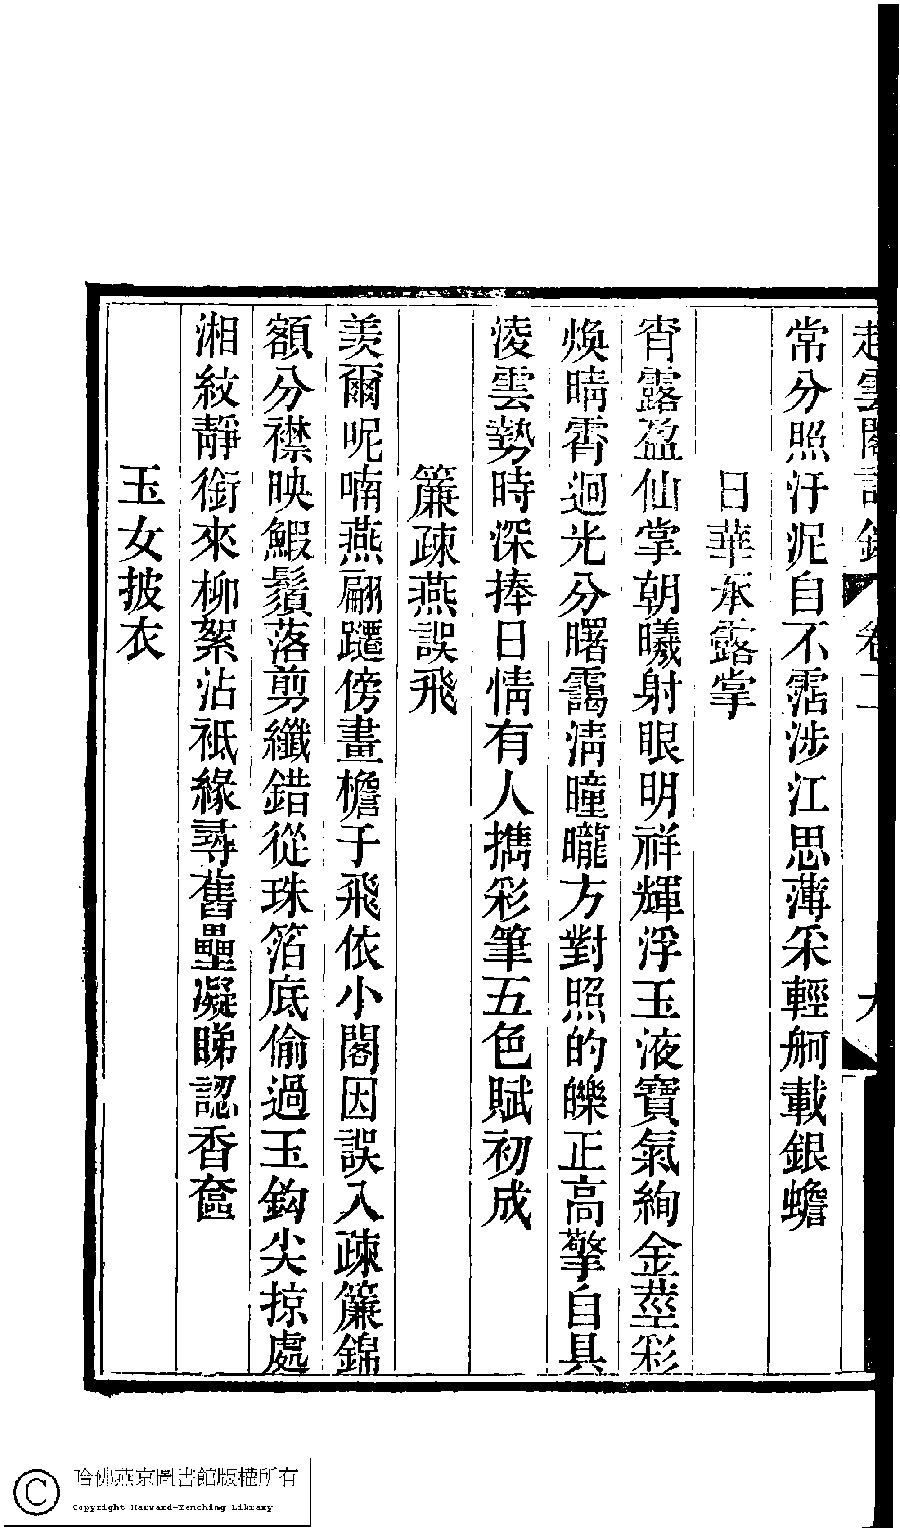 雲閣詩 卷二
常分照汙泥自不霑涉江思薄采輕舸載銀蟾
日華承露掌
宵露盈仙掌朝曦射眼明祥輝浮玉液寶氣絢金莖彩
煥晴霄迥光分曙靄淸曈曨方對照的皪正高擎自具
淩雲勢時深捧日情有人擕彩筆五色賦初成
簾疎燕誤飛
羨爾呢喃燕翩躚傍畫檐子飛依小閣因誤入疎簾錦
額分襟映鰕鬚落剪纖錯從珠箔底偷過玉鈎尖掠處
湘紋靜銜來柳絮沾衹緣尋舊壘凝睇認香奩
玉女披衣
哈佛燕京圖書館版權所有
Copyright Harvard-Yenching Library